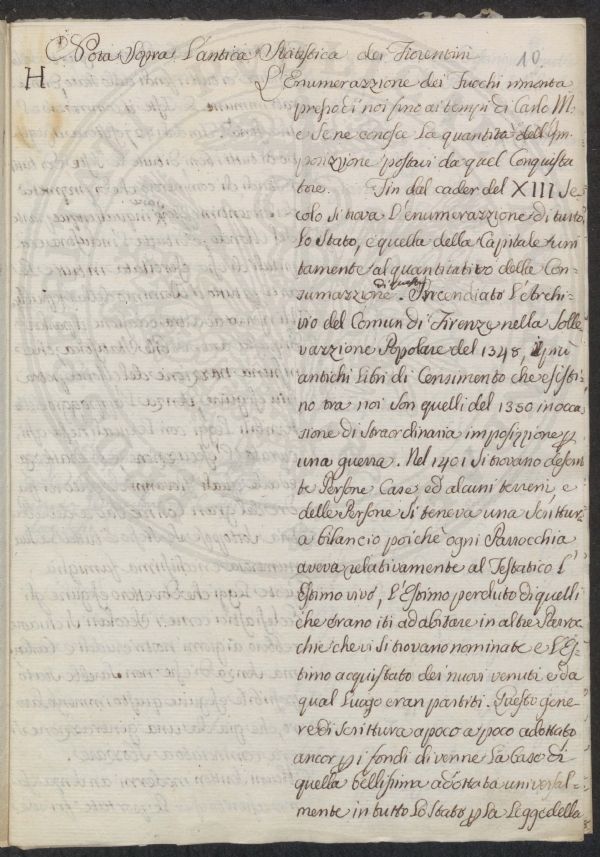 Nota Sopra L'antica Statistica dei Fiorentini
10.
H
L'Enumerazzione dei Fuochi rimonta
presso di noi fino ai tempi di Carlo M.
e se ne conosce La quantità dell'Im-
posizzione postavi da quel Conquista
tore. Fin dal cader del XIII Se
colo si trova L'enumerazzione di tutto
Lo Stato, e quella della Capitale uni
tamente al quantitativo della Con-
sumazzione. Incendiato L'Archi-
di questa
vio del Comun di Firenze nella Solle
vazzione Popolare del 1348, i più
antichi Libri di Censimento che esisti-
no tra noi Son quelli del 1350 in occa
sione di straordinaria imposizzione p
una guerra. Nel 1401 Si trovano descrit
te Persone Case ed alcuni terreni, e
delle Persone Si teneva una Scrittura
a bilancio poichè ogni Parrocchia
aveva relativamente al Testatico L'
Estimo vivo, L'Estimo perduto di quelli
che erano iti ad abitare in altre Parroc
chie che vi si trovano nominate e L'Es-
timo acquistato dei nuovi venuti e da
qual Luogo eran partiti. Questo gene-
re di Scrittura a poco a poco adottato
ancor p i fondi divenne La base di
quella bellissima adottata universal=
mente in tutto Lo Stato p La Legge della